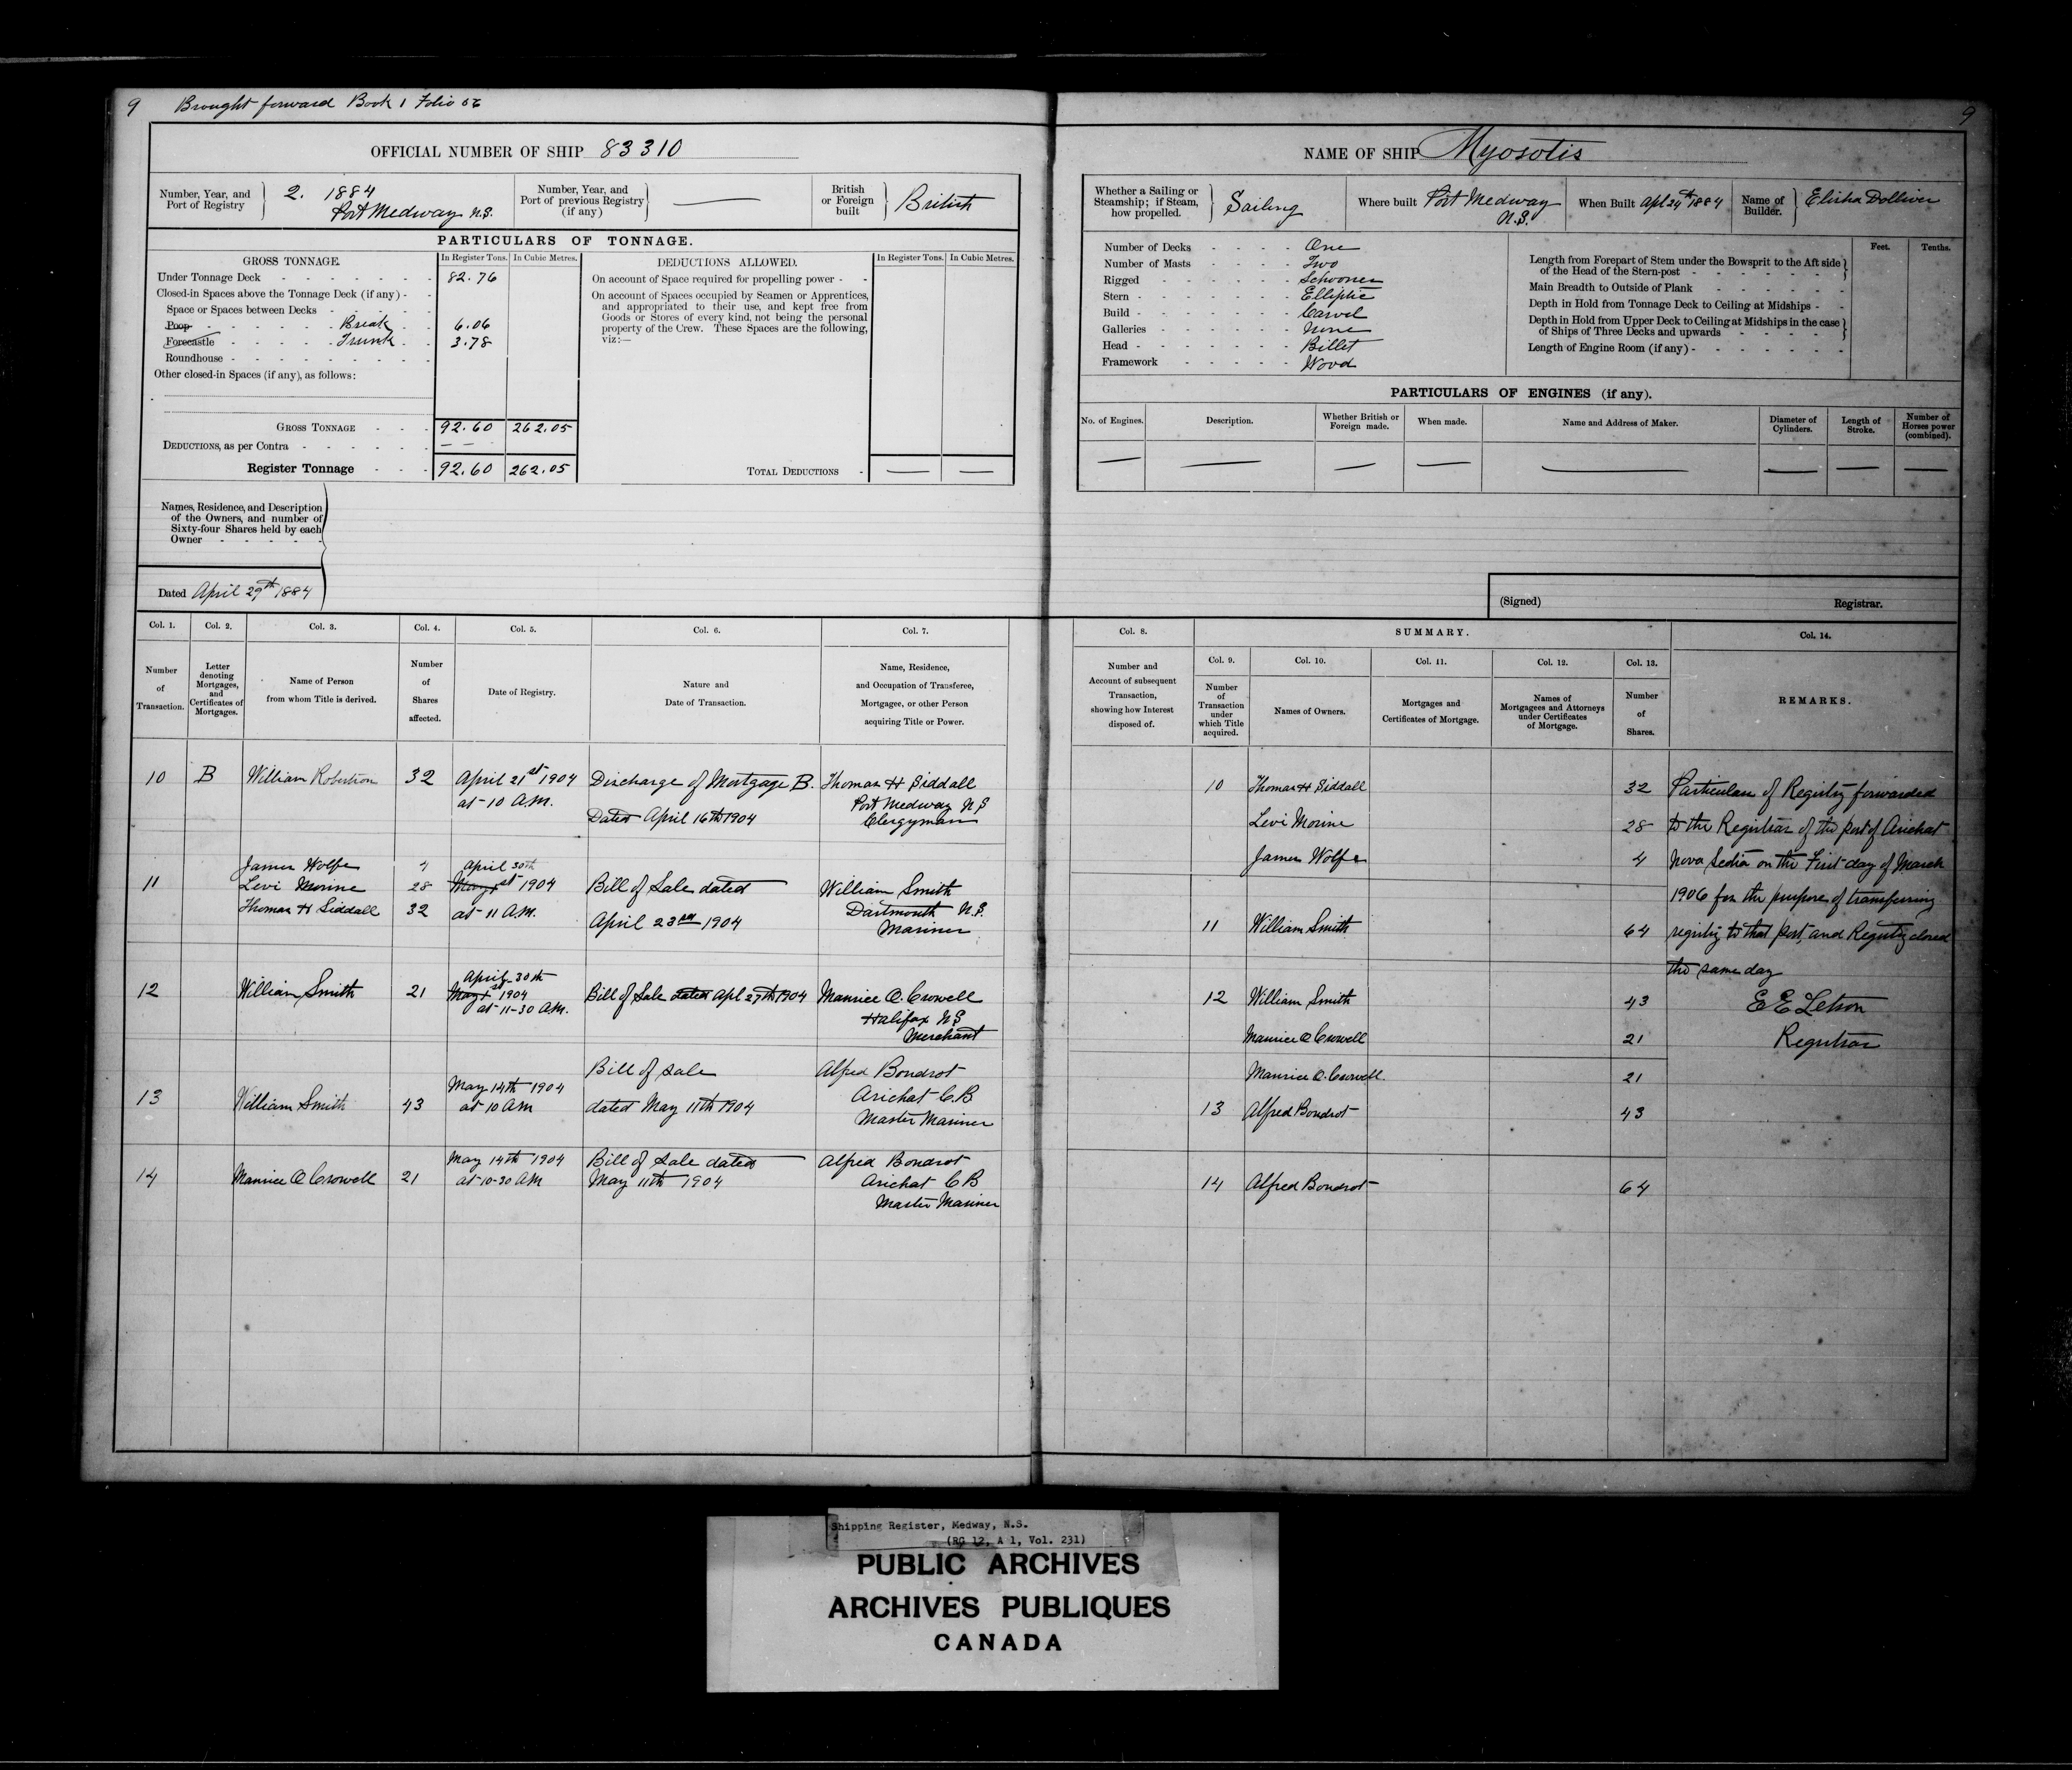 9 Brought forward Book 1 Folio 56
OFFICIAL NUMBER OF SHIP 83310
Number, Year, and Port of Registry 2. 1884 Port Medway N.S.
Number, Year, and Port of previous Registry (if any) —
British or Foreign built British
PARTICULARS OF TONNAGE.
GROSS TONNAGE. In Register Tons. In Cubic Metres.
Under Tonnage Deck 82.76
Closed-in Spaces above the Tonnage Deck (if any)
Space or Spaces between Decks
Poop Break 6.06
Forecastle Trunk 3.78
Roundhouse
Other closed-in Spaces (if any), as follows:
GROSS TONNAGE 92.60 262.05
DEDUCTIONS, as per Contra — —
Register Tonnage 92.60 262.05
DEDUCTIONS ALLOWED. In Register Tons. In Cubic Metres.
On account of Space required for propelling power
On account of Spaces occupied by Seamen or Apprentices,
and appropriated to their use, and kept free from
Goods or Stores of every kind, not being the personal
property of the Crew. These Spaces are the following,
viz:—
TOTAL DEDUCTIONS — —
Names, Residence, and Description
of the Owners, and number of
Sixty-four Shares held by each
Owner
Dated April 29th 1884
Col. 1. Col. 2. Col. 3. Col. 4. Col. 5. Col. 6. Col. 7.
Number of Transaction.
Letter denoting Mortgages, and Certificates of Mortgages.
Name of Person from whom Title is derived.
Number of Shares affected.
Date of Registry.
Nature and Date of Transaction.
Name, Residence, and Occupation of Transferee, Mortgagee, or other Person acquiring Title or Power.
10 B William Robertson 32 April 21st 1904 Discharge of Mortgage B. Thomas H Siddall
at 10 A.M. Port Medway N S
Dated April 16th 1904 Clergyman
James Wolfe 4 April 30th
11 Levi Morine 28 May 1st 1904 Bill of Sale dated William Smith
Thomas H Siddall 32 at 11 A.M. Dartmouth N.S.
April 23rd 1904 Mariner
April 30th
12 William Smith 21 May 1st 1904 Bill of Sale dated Apl 27th 1904 Maurice O. Crowell
at 11-30 A.M. Halifax N S
Merchant
Bill of Sale Alfred Boudrot
May 14th 1904
13 William Smith 43 at 10 AM dated May 11th 1904 Arichat C.B
Master Mariner
May 14th 1904 Bill of Sale dated Alfred Boudrot
14 Maurice O Crowell 21 at 10-30 AM May 11th 1904 Arichat C B
Master Mariner
9
NAME OF SHIP Myosotis
Whether a Sailing or Steamship; if Steam, how propelled. Sailing
Where built Port Medway N.S.
When Built Apl 24th 1884
Name of Builder. Elisha Dolliver
Number of Decks One
Number of Masts Two
Rigged Schooner
Stern Elliptic
Build Carvel
Galleries None
Head Billet
Framework Wood
Feet. Tenths.
Length from Forepart of Stem under the Bowsprit to the Aft side
of the Head of the Stern-post
Main Breadth to Outside of Plank
Depth in Hold from Tonnage Deck to Ceiling at Midships
Depth in Hold from Upper Deck to Ceiling at Midships in the case
of Ships of Three Decks and upwards
Length of Engine Room (if any)
PARTICULARS OF ENGINES (if any).
No. of Engines. Description. Whether British or Foreign made. When made. Name and Address of Maker. Diameter of Cylinders. Length of Stroke. Number of Horses power (combined).
— — — — — — — —
(Signed) Registrar.
Col. 8. SUMMARY. Col. 14.
Col. 9. Col. 10. Col. 11. Col. 12. Col. 13.
Number and Account of subsequent Transaction, showing how Interest disposed of.
Number of Transaction under which Title acquired.
Names of Owners.
Mortgages and Certificates of Mortgage.
Names of Mortgagees and Attorneys under Certificates of Mortgage.
Number of Shares.
REMARKS.
10 Thomas H Siddall 32 Particulars of Registry forwarded
Levi Morine 28 to the Registrar of the port of Arichat
James Wolfe 4 Nova Scotia on the First day of March
1906 for the purpose of transferring
11 William Smith 64 registry to that port, and Registry closed
the same day
12 William Smith 43 E E Letson
Maurice O Crowell 21 Registrar
Maurice O. Crowell 21
13 Alfred Boudrot 43
14 Alfred Boudrot 64
Shipping Register, Medway, N.S.
(RG 12, A 1, Vol. 231)
PUBLIC ARCHIVES
ARCHIVES PUBLIQUES
CANADA